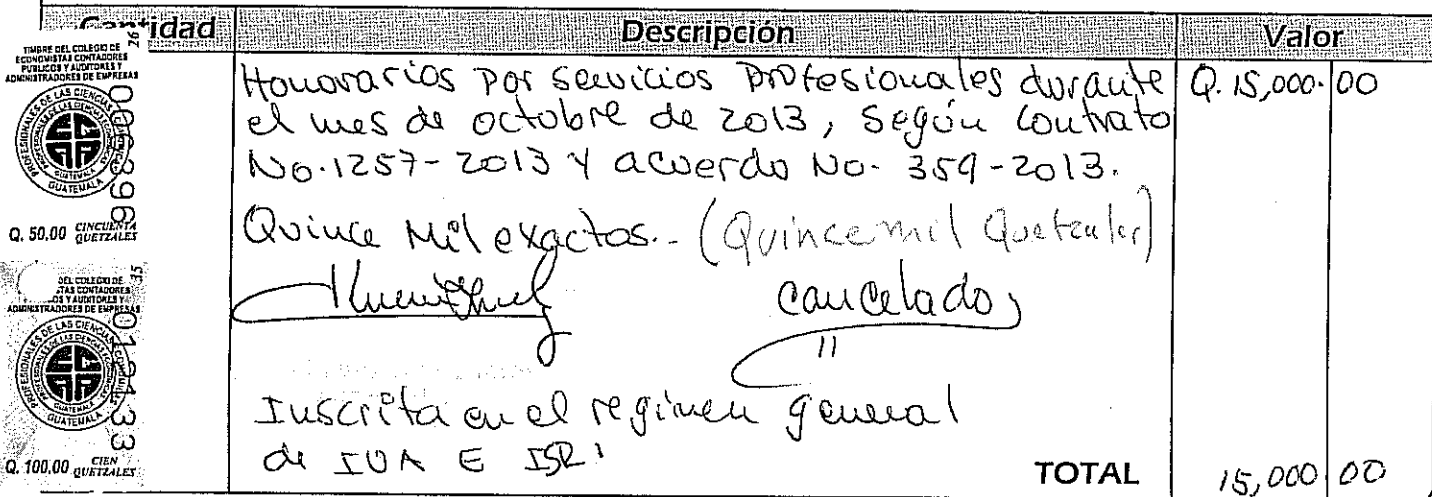 Cantidad Descripción Valor
TIMBRE DEL COLEGIO DE
ECONOMISTAS CONTADORES
PUBLICOS Y AUDITORES Y
ADMINISTRADORES DE EMPRESAS
GUATEMALA
Q. 50.00 CINCUENTA QUETZALES
DEL COLEGIO DE
TAS CONTADORES
OS Y AUDITORES Y
ADMINISTRADORES DE EMPRESAS
GUATEMALA
Q. 100.00 CIEN QUETZALES
Honorarios por servicios profesionales durante Q. 15,000.00
el mes de octubre de 2013, Según Contrato
No. 1257-2013 y acuerdo No. 359-2013.
Quince Mil exactos.- (Quince mil Quetzales)
cancelado
Inscrita en el regimen general
de IVA E ISR.
TOTAL 15,000 00